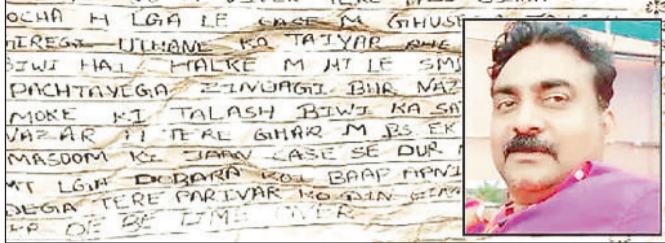 OCHA H LGA LE CASE M GHUSE
GIREGI UTHANE KO TAIYAR RHE
BIWI HAI HALKE M MT LE SMJ
PACHTAYEGA ZINDAGI BHR NAZ
MOKE KI TALASH BIWI KA SA
NAZAR H TERE GHAR M BS EK
MASOOM KI JAAN CASE SE DUR
MT LGA DOBARA KOI BAAP APNI
DEGA TERE PARIVAR KO DIN GINN
OF BE TIME OVER